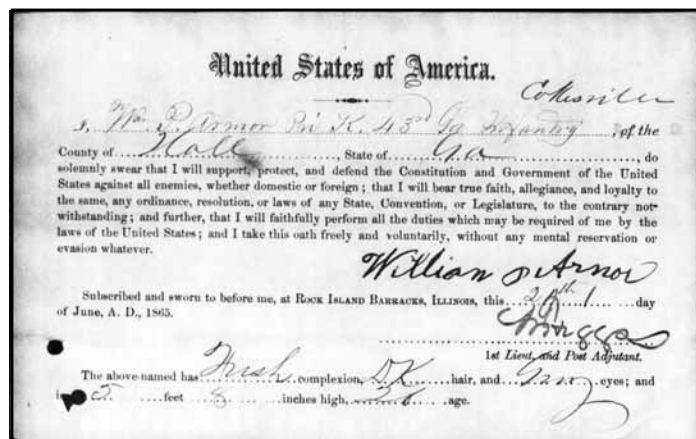 United States of America.
I, Wm P. Armor Pri K. 43rd Ga Infantry, of the
County of Hall, State of Ga, do
solemnly swear that I will support, protect, and defend the Constitution and Government of the United
States against all enemies, whether domestic or foreign; that I will bear true faith, allegiance, and loyalty to
the same, any ordinance, resolution, or laws of any State, Convention, or Legislature, to the contrary not-
withstanding; and further, that I will faithfully perform all the duties which may be required of me by the
laws of the United States; and I take this oath freely and voluntarily, without any mental reservation or
evasion whatever.
William P Armor
Subscribed and sworn to before me, at ROCK ISLAND BARRACKS, ILLINOIS, this day
of June, A. D., 1865.
1st Lieut, and Post Adjutant.
The above-named has Fresh complexion, DK hair, and Gray eyes; and
is 5 feet 8 inches high, age.